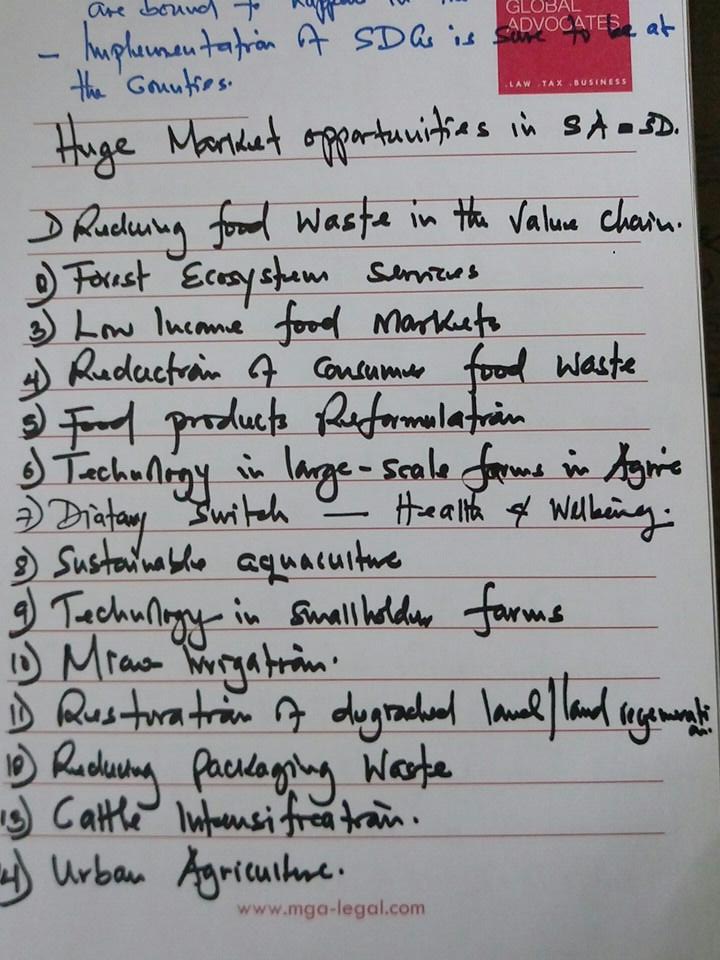 are bound to happen in the
GLOBAL
ADVOCATES
- Implementation of SDGs is sure to be at
the Counties.
.LAW .TAX .BUSINESS
Huge Market opportunities in SA = SD.
1) Reducing food Waste in the Value Chain.
2) Forest Ecosystem Services
3) Low Income food Markets
4) Reduction of Consumer food Waste
5) Food products Reformulation
6) Technology in large-scale farms in Agric
7) Diatary Switch — Health & Wellbeing.
8) Sustainable aquaculture
9) Technology in smallholder farms
10) Micro Irrigation.
11) Restoration of degraded land/land regeneration.
12) Reducing Packaging Waste
13) Cattle Intensification.
14) Urban Agriculture.
www.mga-legal.com